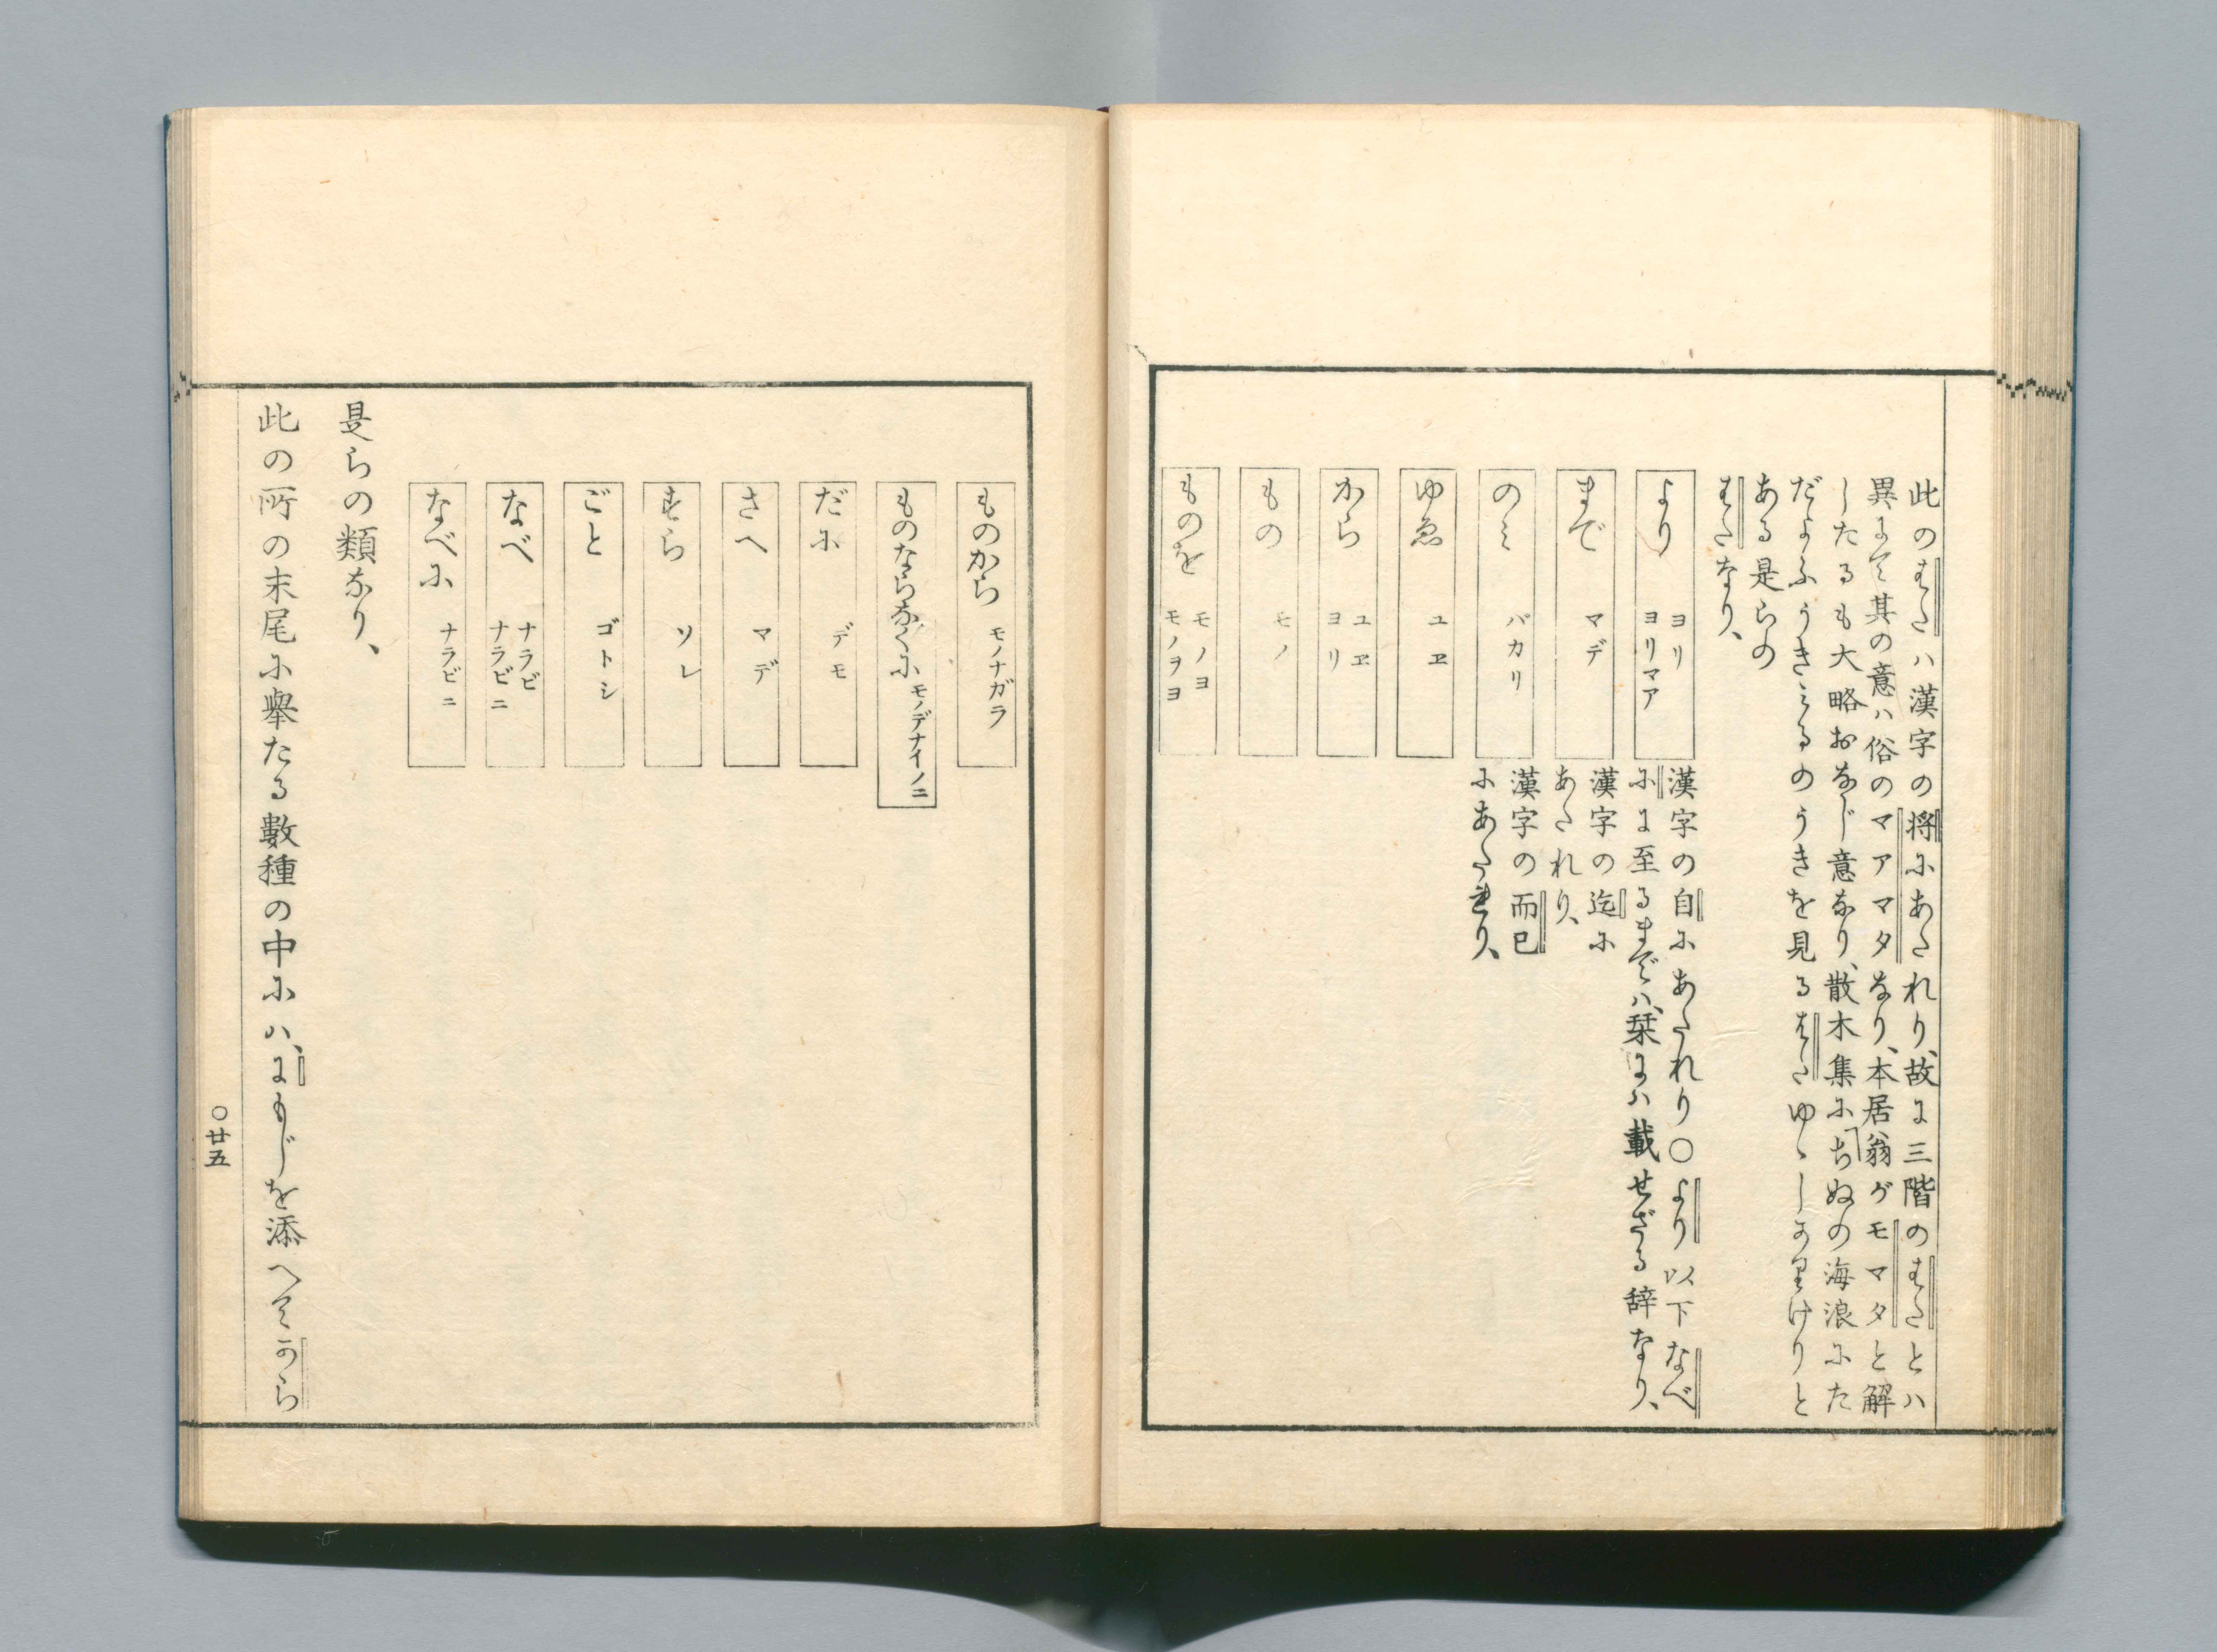 此のはたハ漢字の将にあたれり、故に三階のはたとハ
異にて其の意ハ俗のマアマタなり、本居翁ガモマタと解
したるも大略おなじ意なり、散木集に「ちぬの海浪にた
だよふうきミるのうきを見るはたゆゝしかりけりと
ある是らの
はたなり、
より ヨリ ヨリマア 漢字の自にあたれり〇より以下なべ
にに至るまでハ、栞にハ載せざる辞なり、
まで マデ 漢字の迄に
あたれり、
のミ バカリ 漢字の而已
にあたれり、
ゆゑ ユヱ
から ユヱ ヨリ
もの モノ
ものを モノヨ モノヲヨ
ものから モノナガラ
ものならなくに モノデナイノニ
だに デモ
さへ マデ
すら ソレ
ごと ゴトシ
なべ ナラビ ナラビニ
なべに ナラビニ
是らの類なり、
此の所の末尾に挙たる數種の中にハ、にもじを添へてから
〇廿五